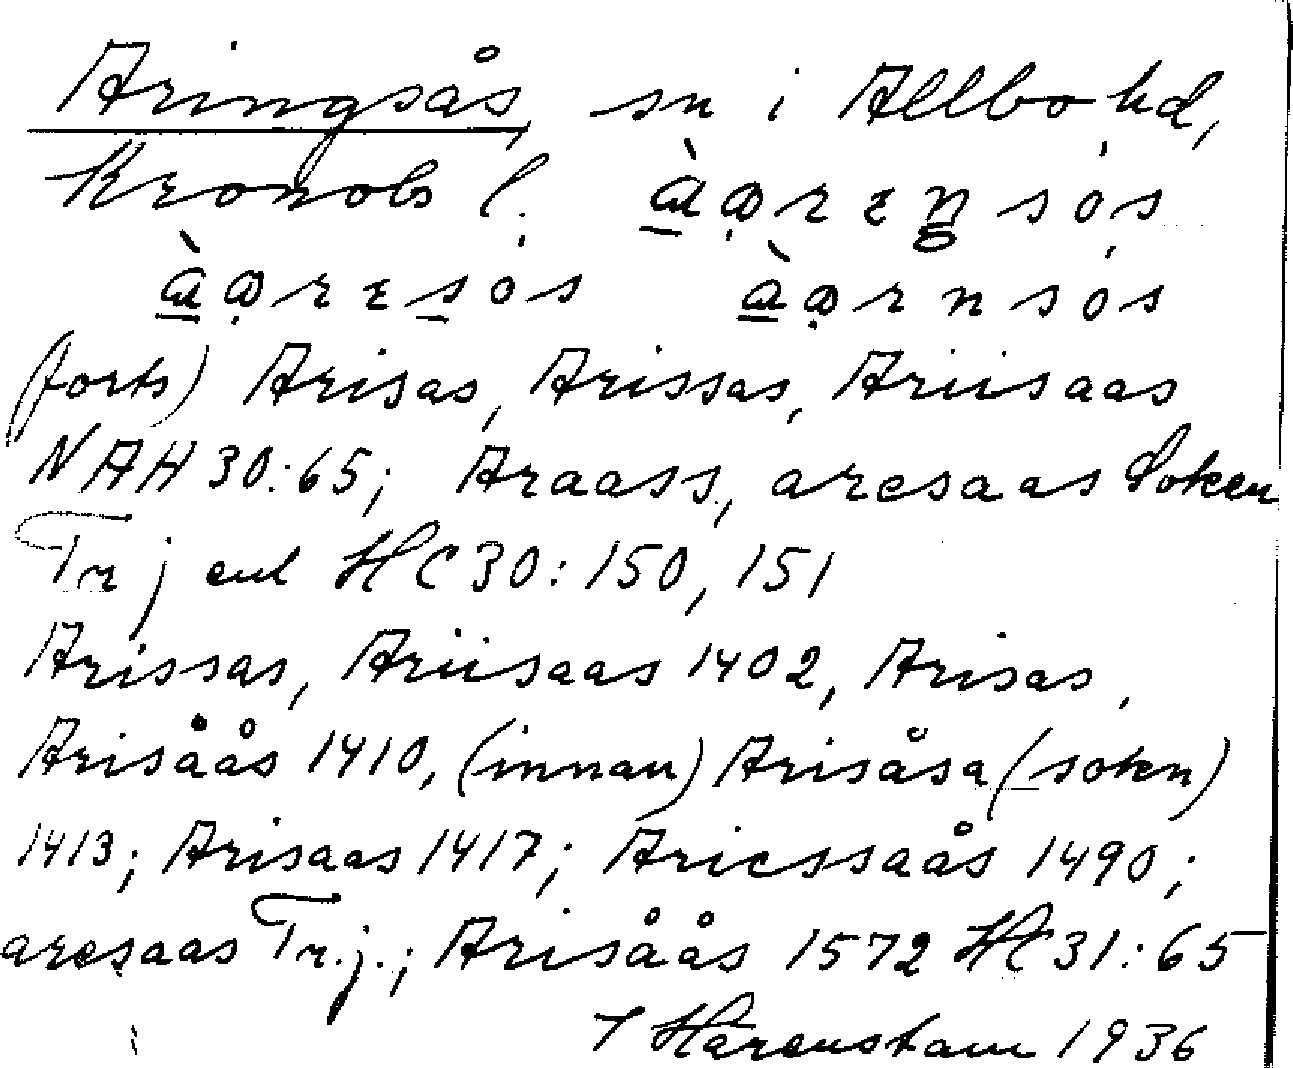 Aringsås, sn i Allbo hd,
Kronobs l. àạrɛŋsós
àạrɛsós àạrnsós
(forts) Arisas, Arissas, Ariisaas
NAH 30:65; Araass, aresaas Soken
Trj enl HC 30:150, 151
Arissas, Ariisaas 1402, Arisas,
Arisåås 1410, (innan) Arisåsa (sokn)
1413; Arisaas 1417; Aricssaås 1490;
aresaas Tr.j.; Arisåås 1572 HC 31:65
C Härenstam 1936